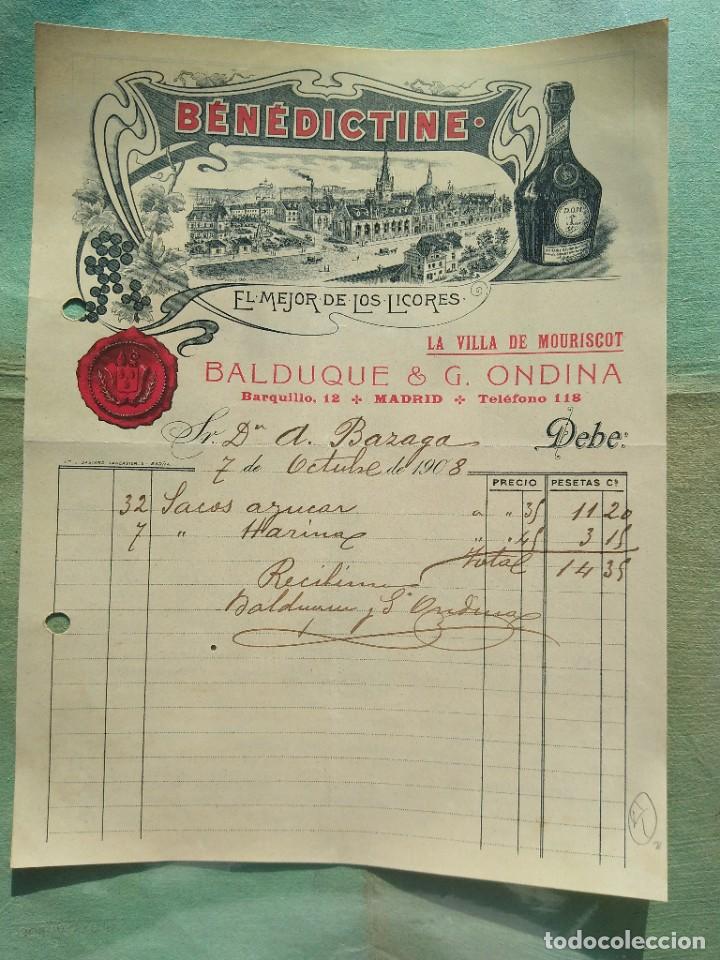 BÉNÉDICTINE
D.O.M
EL MEJOR DE LOS LICORES
LA VILLA DE MOURISCOT
BALDUQUE & G. ONDINA
Barquillo, 12 MADRID Teléfono 118
Sr. Dn A. Bazaga Debe:
7 de Octubre de 1908
PRECIO PESETAS Cs
32 Sacos azucar a " 35 11 20
7 " Harina " " 45 3 15
Total 14 35
Recibimos
Balduque y G. Ondina
todocoleccion.net